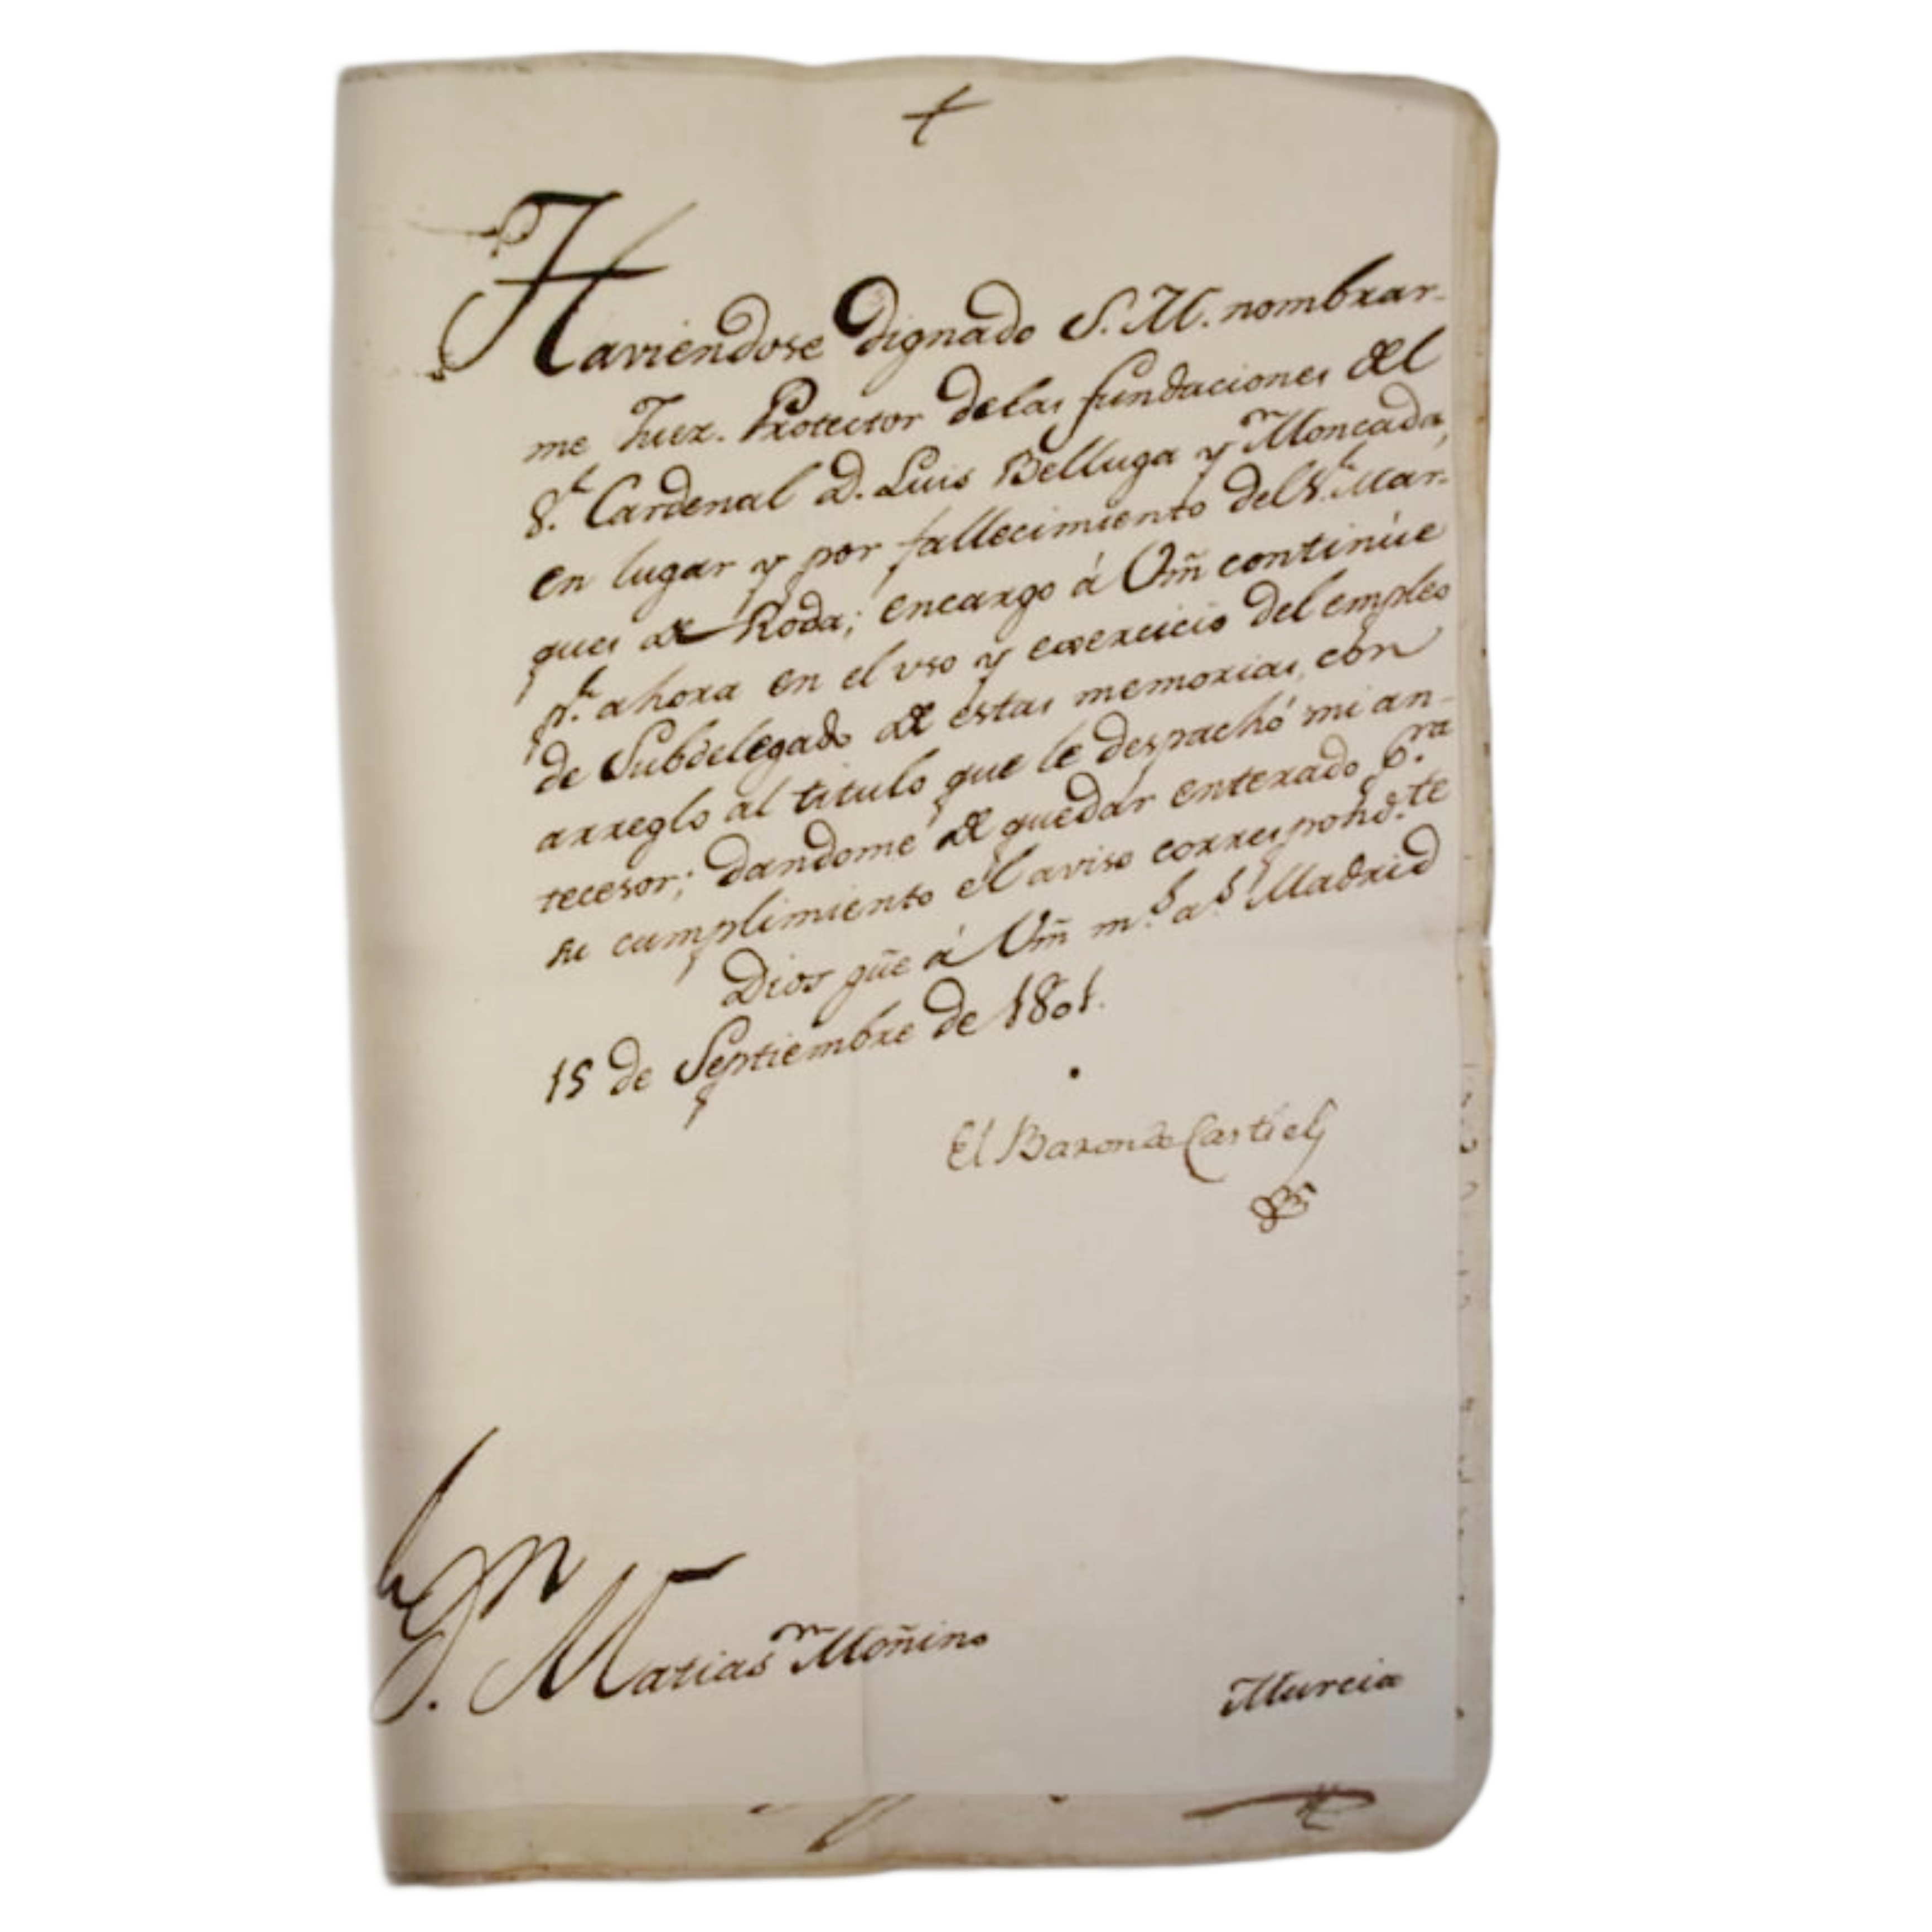 +
Haviendose dignado S. M. nombrar-
me Juez Protector delas fundaciones del
S.r Cardenal D. Luis Belluga y Moncada,
en lugar y por fallecimiento del S.r Mar-
ques de Roda; encargo á Vm̃ continúe
p.r ahora en el vso y exercicio del empleo
de Subdelegado de estas memorias, con
arreglo al titulo que le despachó mi an-
tecesor; dandome de quedar enterado p.ra
su cumplimiento el aviso correspond.te
Dios gũe á Vm̃ m.s a.s Madrid
15 de Septiembre de 1801.
El Baron de Castiel
S.r D.n Matias Moñino
Murcia